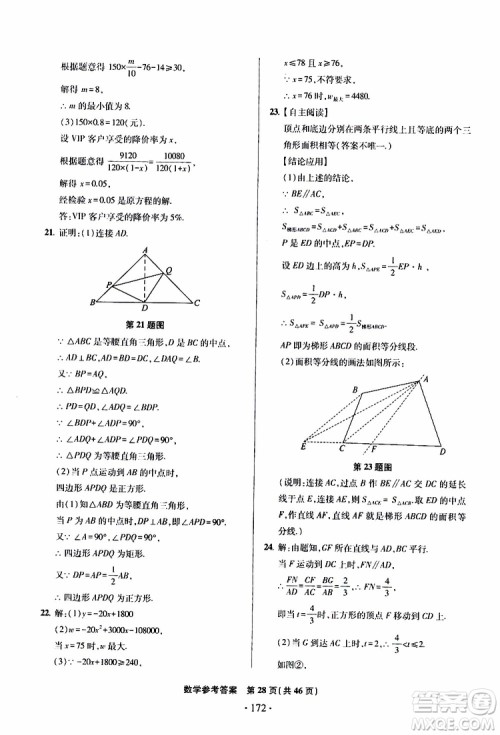 根据题意得 150×m/10-76-14≥30,
解得 m=8,
∴ m 的最大值为 8.
(3)150×0.8=120(元)
设 VIP 客户享受的降价率为 x
根据题意得 9120/120×(1-x)=10080/120×(1+x)
解得 x=0.05,
经检验 x=0.05 是原方程的解.
答:VIP 客户享受的降价率为 5%.
21. 证明:(1)连接 AD.
A
P
Q
B
D
C
第 21 题图
∵ △ABC 是等腰直角三角形,D 是 BC 的中点,
∴ AD⊥BC,AD=BD=DC,∠DAQ=∠B,
又∵ BP=AQ,
∴ △BPD≌△AQD.
∴ PD=QD,∠ADQ=∠BDP,
∵ ∠BDP+∠ADP=90°,
∴ ∠ADP+∠ADQ=90°,即∠PDQ=90°,
∴ △PDQ 为等腰直角三角形.
(2)当 P 点运动到 AB 的中点时,
四边形 APDQ 是正方形.
由(1)知△ABD 为等腰直角三角形,
当 P 为 AB 的中点时,DP⊥AB,即∠APD=90°,
又∵ ∠BAC=90°,∠PDQ=90°,
∴ 四边形 APDQ 为矩形.
又∵ DP=AP=1/2AB,
∴ 四边形 APDQ 为正方形.
22. 解:(1)y=-20x+1800
(2)w=-20x²+3000x-108000
当 x=75 时,w=4500.
(3)-20x+1800≥240
x≤78
x≤78 且 x≥76
∴ x=78 时,w最大=4480.
23. 【自主阅读】
顶点和底边分别在两条平行线上的两个三
角形面积相等(答案不唯一.)
【结论应用】
(1)由上述的结论,
∵ BE∥AC,
∴ S△ABC=S△AEC,
S梯形ABCD=S△ACD+S△ABC=S△ACD+S△AEC=S△AED.
P 是 DE 的中点,
设△APE 的 DE 边上的高为 h,
S△APE=1/2EP·h,S△APD=1/2DP·h,
∴ S△APE=1/2S△AED=1/2S梯形ABCD.
AP 即为梯形的面积等分线.
(2)面积等分线的画法如图所示:
B
A
E
C
F
D
第 23 题图
(说明:连接 AC,过点 B 作 BE∥AC 交 DC 的延长
线于点 E,连接 AE,作 S△ACE=S△ABC,再取 DE 的
中点 F,连接 AF,则直线 AF 即为梯形 ABCD 的面积等
分线.)
24. 解:如题知,DG 所在直线与 AD 所在直线重合,
当 F 运动到 AC 上时,△FCN∽△ACD,
∴ FN/AD=CN/CD,即t/4=t/3,t=4/3
即当 t=4/3时,正方形的顶点 F 移动到 AC 上.
(2)当 G 运动到 AC 上时,4/3<t≤2,
如图②,
数学参考答案 第 28 页(共 46 页)
· 172 ·